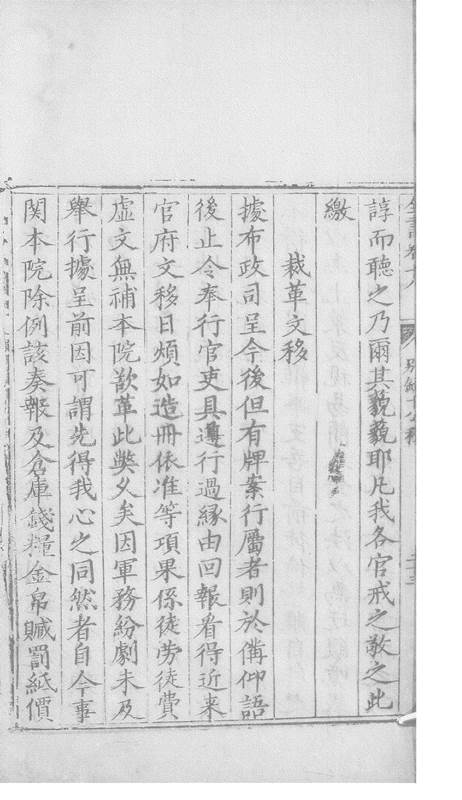 全書卷十八 別録十公移
諄而聽之乃爾其藐藐耶凡我各官戒之敬之此
繳
裁革文移
據布政司呈今後但有牌案行屬者則於備仰語
後止令奉行官吏具遵行過縁由回報看得近来
官府文移日煩如造冊依准等項果係徒勞徒費
虛文無補本院欲革此獘乆矣因軍務紛劇未及
舉行據呈前因可謂先得我心之同然者自今事
関本院除例該奏報及倉庫錢糧金帛贓罰紙價